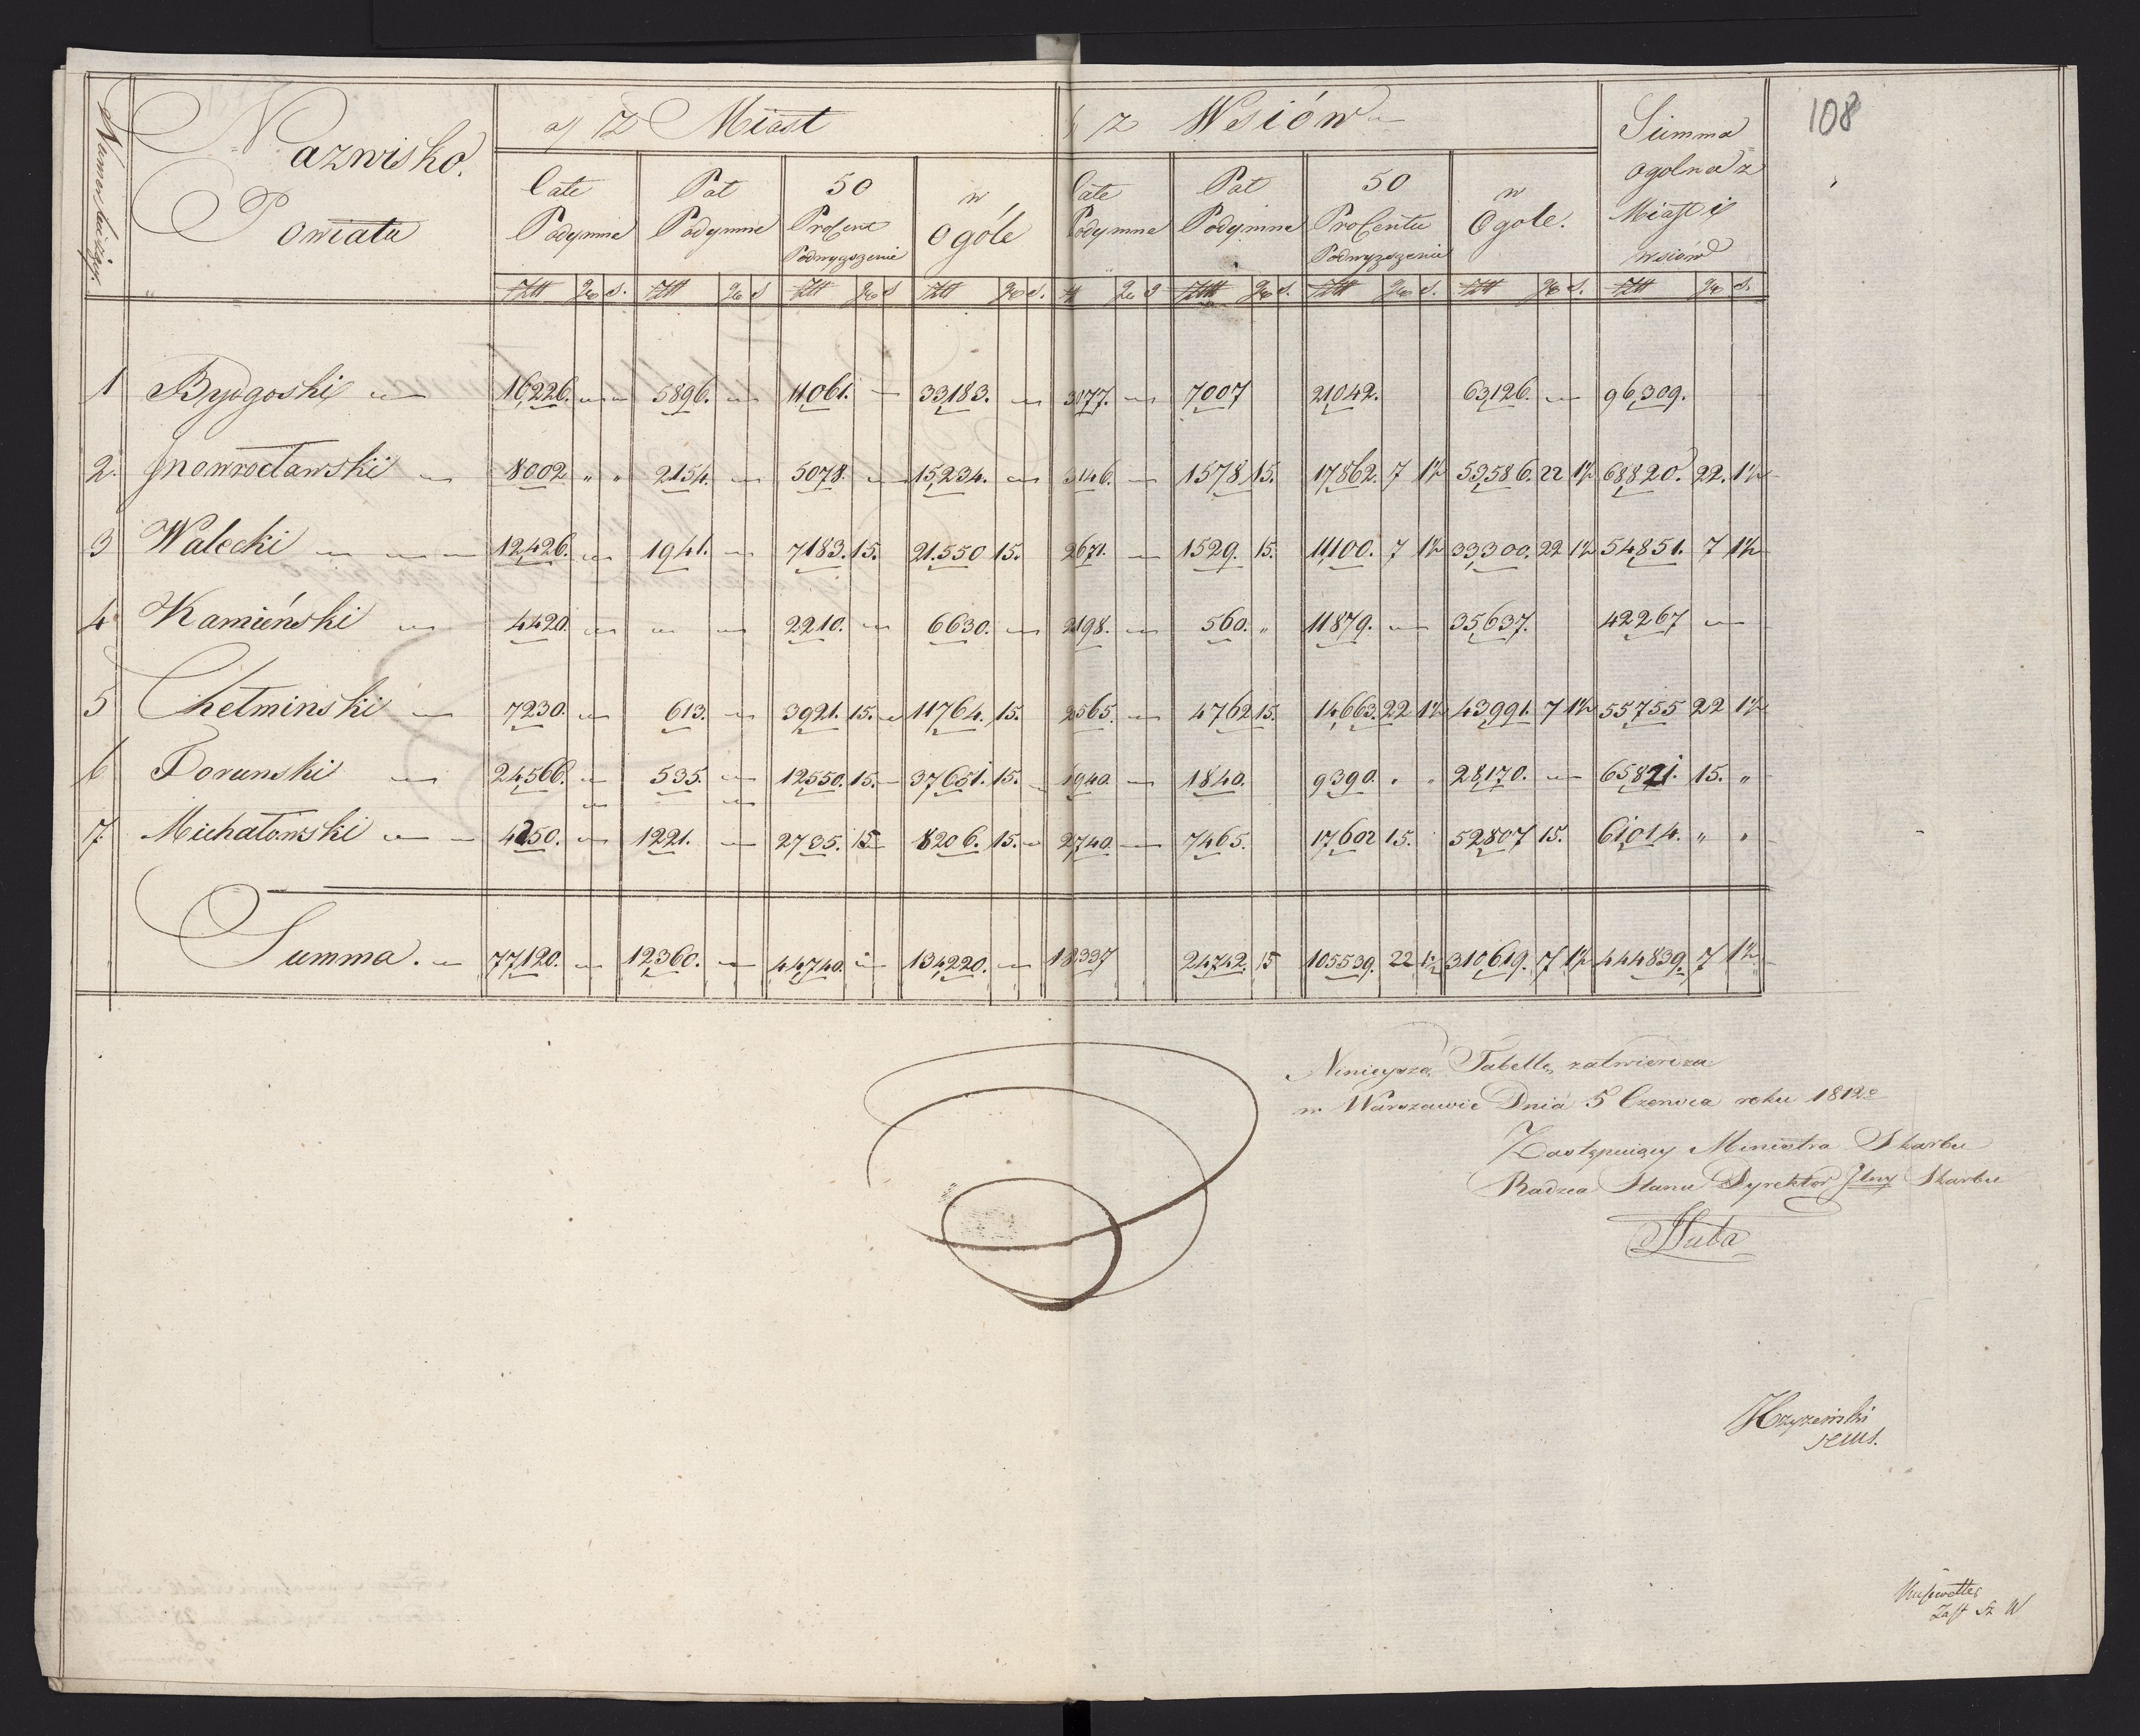 108
Numer bieżący.
Nazwisko.
Powiatu
a) Z Miast
b) z Wsiów
Summa
ogolna z
Miast i
wsiów
Całe Podymne | Pół Podymne | 50 Procent Podwyższenie | w Ogóle | Całe Podymne | Pół Podymne | 50 Procentu Podwyższenie | w Ogole.
Złł gr s. | Złł gr s | Złł gr s | Złł gr s. | gr s | Złł gr s. | Złł gr s. | Złł gr s. | Złł gr s.
1 Bydgoski 16,226. 5896. 11,061. 33,183. 3077. 7007 21,042. 63,126. 96,309.
2. Inowrocławski 8002 " " 2154. 5078. 15,234. 3146. 1578 15. 17,862. 7 1½ 53,586. 22 1½ 68,820. 22. 1½
3 Wałecki 12,426. 1941. 7183. 15. 21.550 15. 2671. 1529. 15. 11,100. 7 1½ 33,300. 22 1½ 54,851. 7 1½
4 Kamieński 4420. 2210. 6630. 2198. 560. " 11879. 35,637. 42267
5 Chełminski 7230. 613. 3921. 15. 11764. 15. 2565. 4762 15. 14,663. 22 1½ 43,991. 7 1½ 55,755 22 1½
6 Torunski 24,566. 535. 12,550. 15. 37,651. 15. 1940. 1840. 9390. " " 28,170. 65,821. 15. "
7. Michałowski 4250. 1221. 2735. 15 8206. 15. 2740. 7465. 17,602 15. 52807 15. 61,014. " "
Summa. 77,120. 12,360. 44,740. 134,220. 18337 24,742. 15 105539. 22 1½ 310,619. 7 1½ 444839. 7 1½
Ninieysza Tabelle zatwierdza
w Warszawie Dnia 5 Czerwca roku 1812o
Zastępuiący Ministra Skarbu
Radzca Stanu Dyrektor Jlny Skarbu